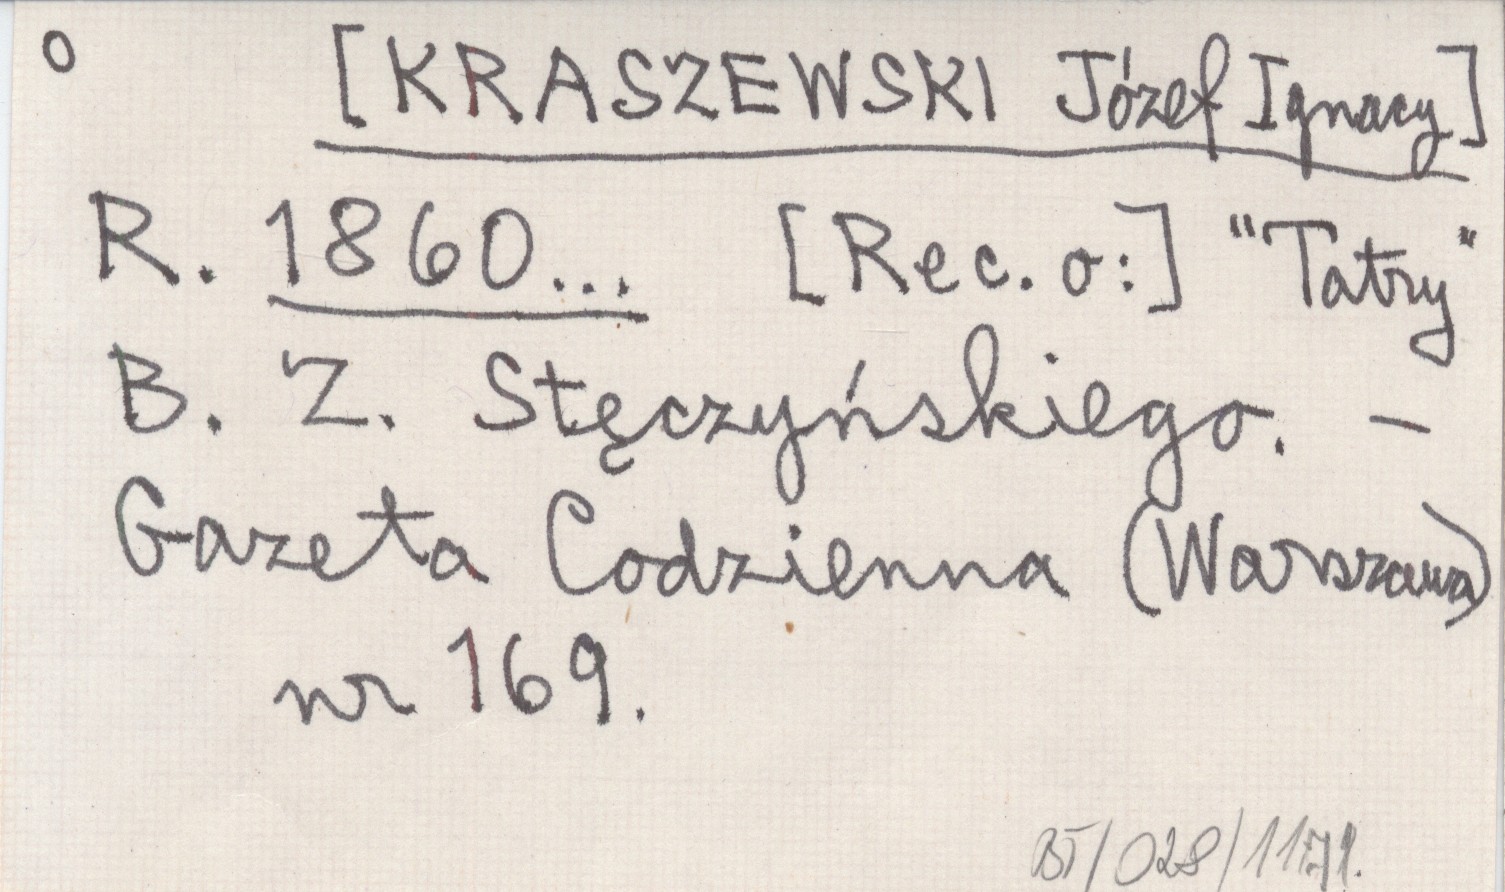 o [KRASZEWSKI Józef Ignacy]
R. 1860... [Rec. o:] "Tatry"
B. Z. Stęczyńskiego. –
Gazeta Codzienna (Warszawa)
nr 169.
BT/028/